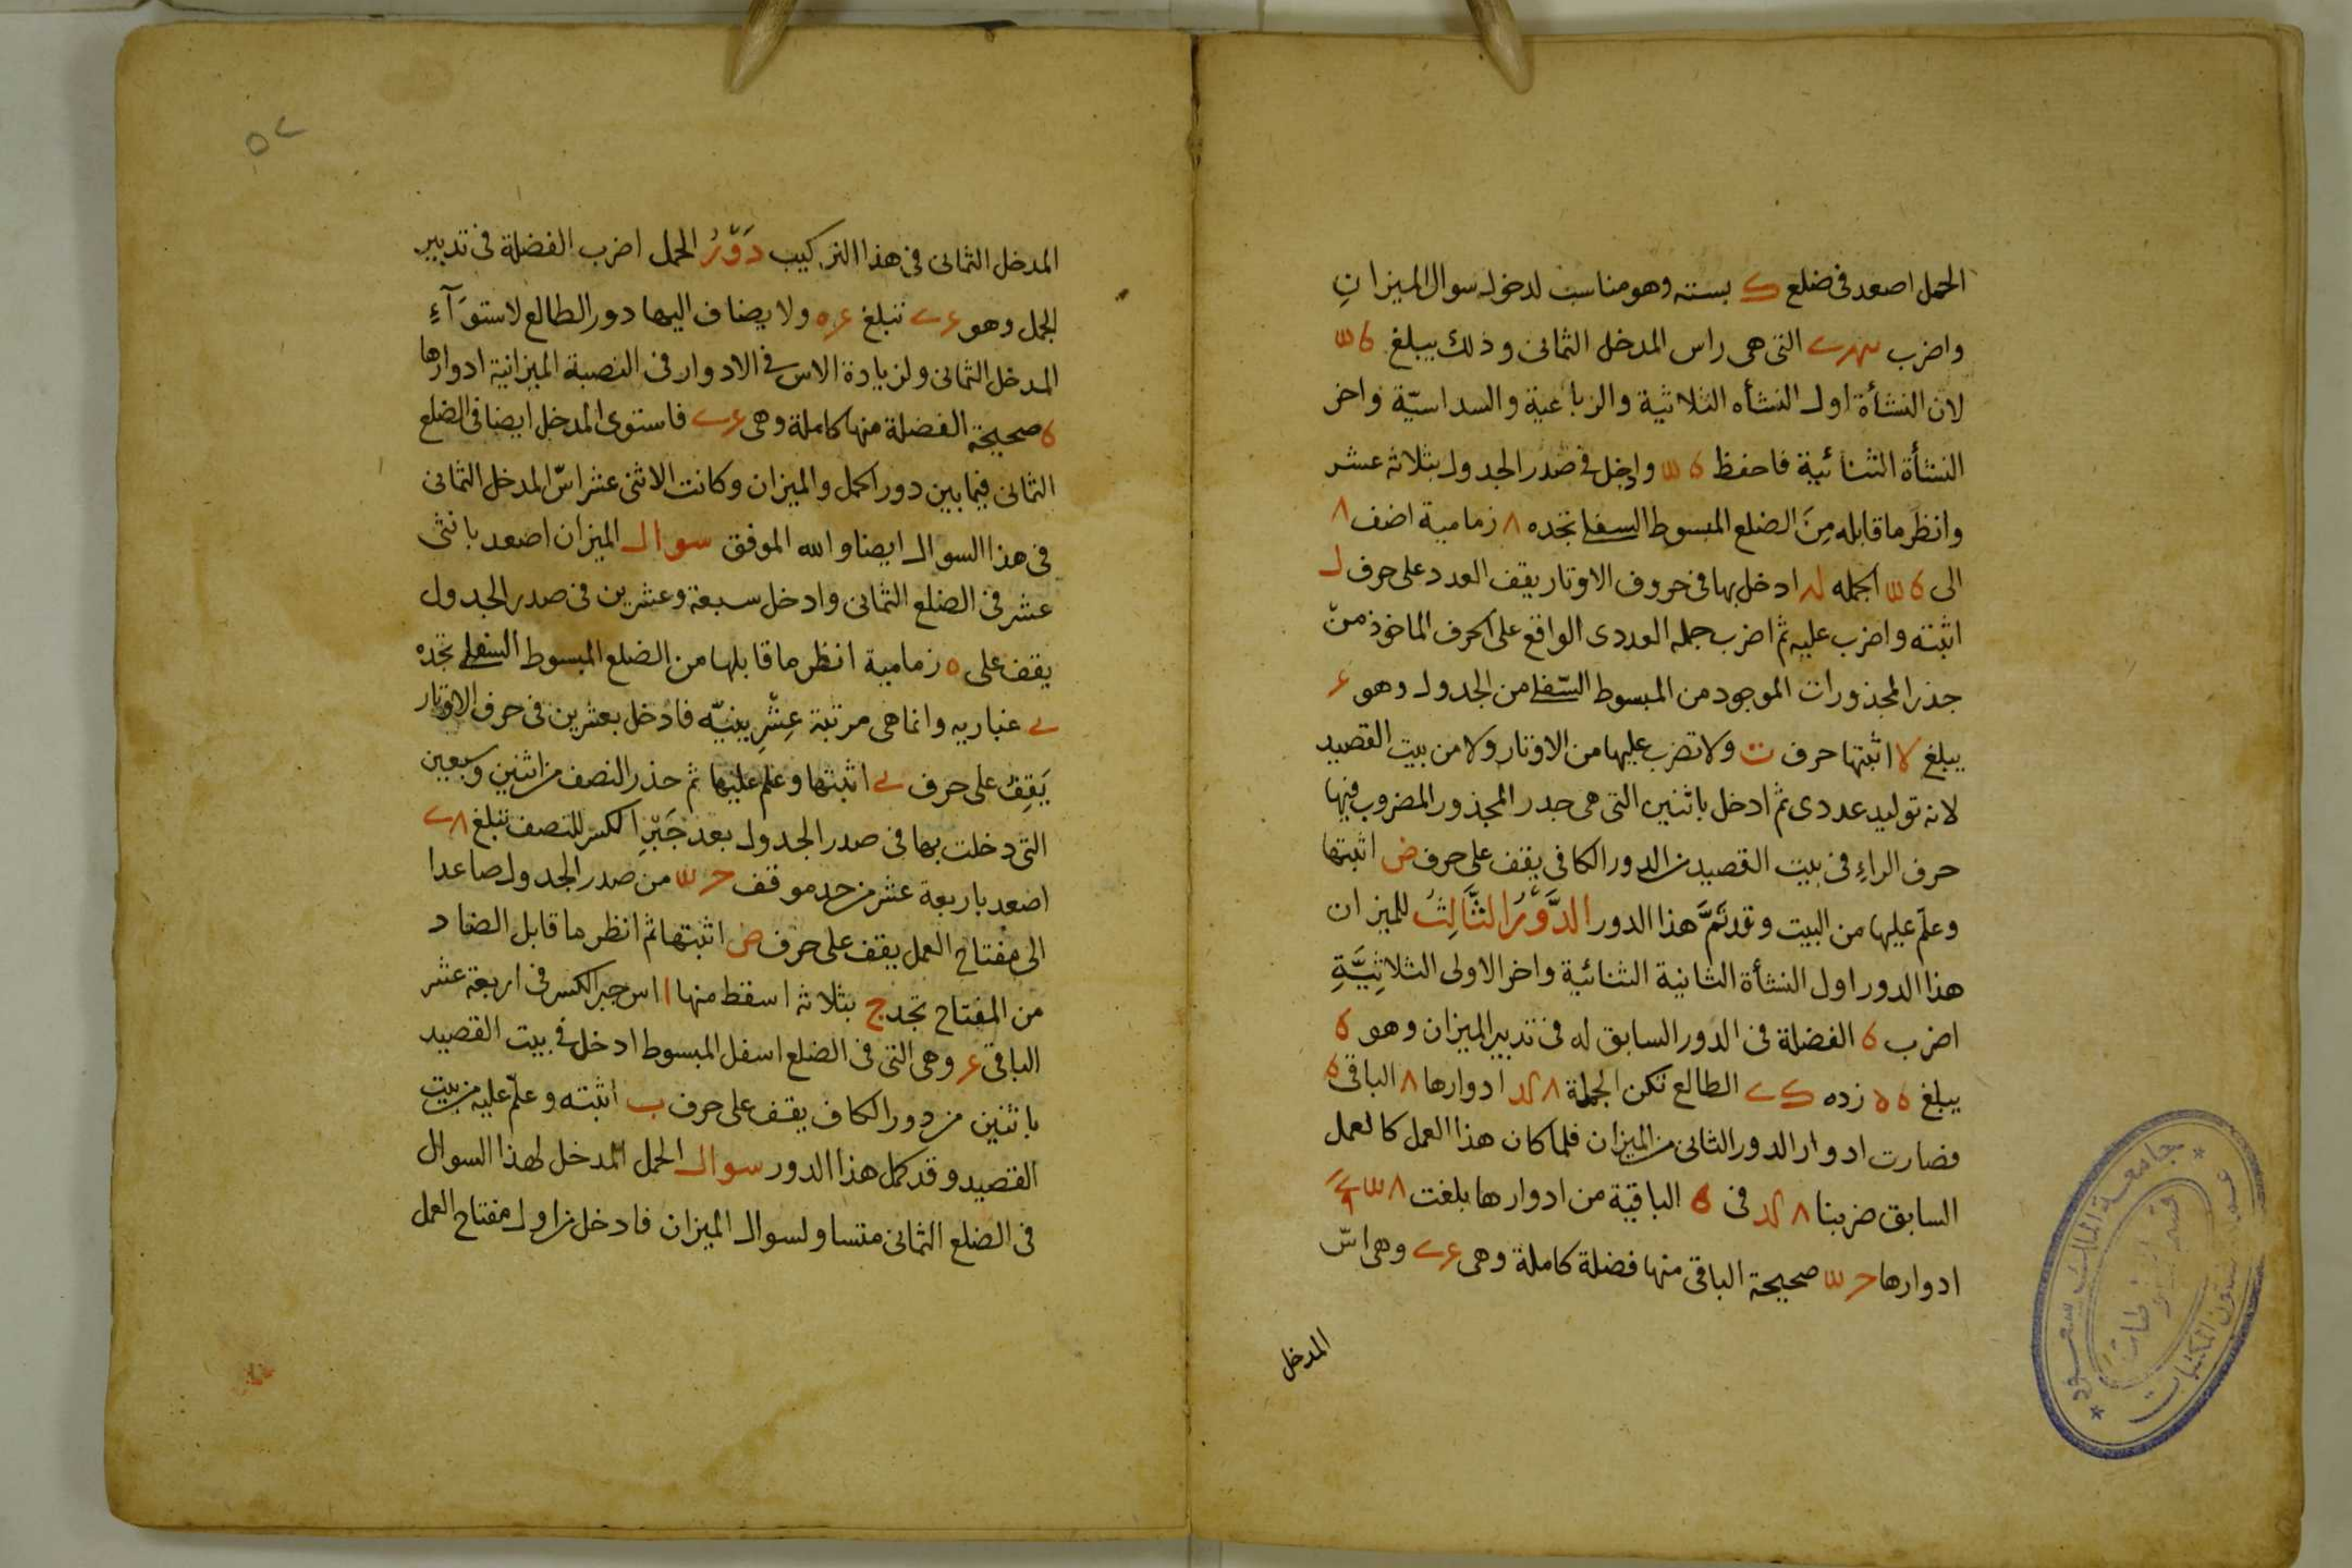 الحمل اصعد فى ضلع ك بسته وهو مناسب لدخول سوال الميزانِ
واضرب التى هى راس المدخل الثمانى وذلك يبلغ
لان النشأة اول النشأه الثلاثية والرباعية والسداسيّة واخر
النشأة الثنائية فاحفظ وادخل فى صدر الجدول بثلاثه عشر
وانظر ما قابله مِنَ الضلع المبسوط السفلى تجده ٨ زمامية اضف ٨
الى اجمله لد ادخل بها فى حروف الاوتار يقف العدد على حرف ل
اثبته واضرب عليه ثم اضرب جمله العددى الواقع على الحرف الماخوذ منْ
جذر المجذورات الموجود من المبسوط السّفلى من الجدول وهو ع
يبلغ لا اثبتها حرف ت ولا تضرب عليها من الاوتار ولا من بيت القصيد
لانه توليد عددى ثم ادخل باثنين التى هى جدر المجذور المضروب فيها
حرف الراءِ فى بيت القصيد من الدور الكافى يقف على حرف ض اثبتها
وعلّم عليها من البيت وقد تَمَّ هذا الدور الدَّوْرُ الثَّالِثُ للميزان
هذا الدور اول النشأة الثانية الثنائية واخر الاولى الثلاثِيَّةِ
اضرب ٥ الفضلة فى الدور السابق له فى تدبير الميزان وهو ٥
يبلغ زده الطالع تكن الجملة ادوارها ٨ الباقى ٥
فصارت ادوار الدور الثانى من الميزان فلما كان هذا العمل كالعمل
السابق ضربنا فى ٥ الباقية من ادوارها بلغت
ادوارها صحيحة الباقى منها فضلة كاملة وهى وهى اسّ
المدخل
٥٢
المدخل الثمانى فى هذا التركيب دَوْرُ الحمل اضرب الفضلة فى تدبير
الحمل وهو تبلغ ولا يضاف اليها دور الطالع لاستوَآءِ
المدخل الثمانى ولزيادة الاس فى الادوار فى النصبة الميزانية ادوارها
٥ صحيحة الفضلة منها كاملة وهى فاستوى المدخل ايضا فى الضلع
الثمانى فيما بين دور الحمل والميزان وكانت الاثنى عشر اسّ المدخل الثمانى
فى هذا السوال ايضا والله الموفق سوال الميزان اصعد باثنى
عشر فى الضلع الثمانى وادخل سبعة وعشرين فى صدر الجدول
يقف على ٥ زمامية انظر ما قابلها من الضلع المبسوط السفلى تجده
ے غباريه وانما هى مرتبة عِشْرِينيّه فادخل بعشرين فى حرف الاوتار
يَقِفُ على حرف ے اثبتها وعلم عليها ثم حذر النصف من اثنين وسبعين
التى دخلت بها فى صدر الجدول بعد جَبْرِ الكسر للنصف تبلغ
اصعد باربعة عشر من حد موقف من صدر الجدول صاعدا
الى مفتاح العمل يقف على حرف ض اثبتها ثم انظر ما قابل الضاد
من المفتاح تجد ج بثلاثه اسقط منها ا اس جبر الكسر فى اربعة عشر
الباقى ع وهى التى فى الضلع اسفل المبسوط ادخل فى بيت القصيد
باثنين من دور الكاف يقف على حرف ب اثبته وعلّم عليه من بيت
القصيد وقد كمل هذا الدور سوال الحمل المدخل لهذا السوال
فى الضلع الثمانى متساو لسوال الميزان فادخل من اول مفتاح العمل
جامعة الملك سعود